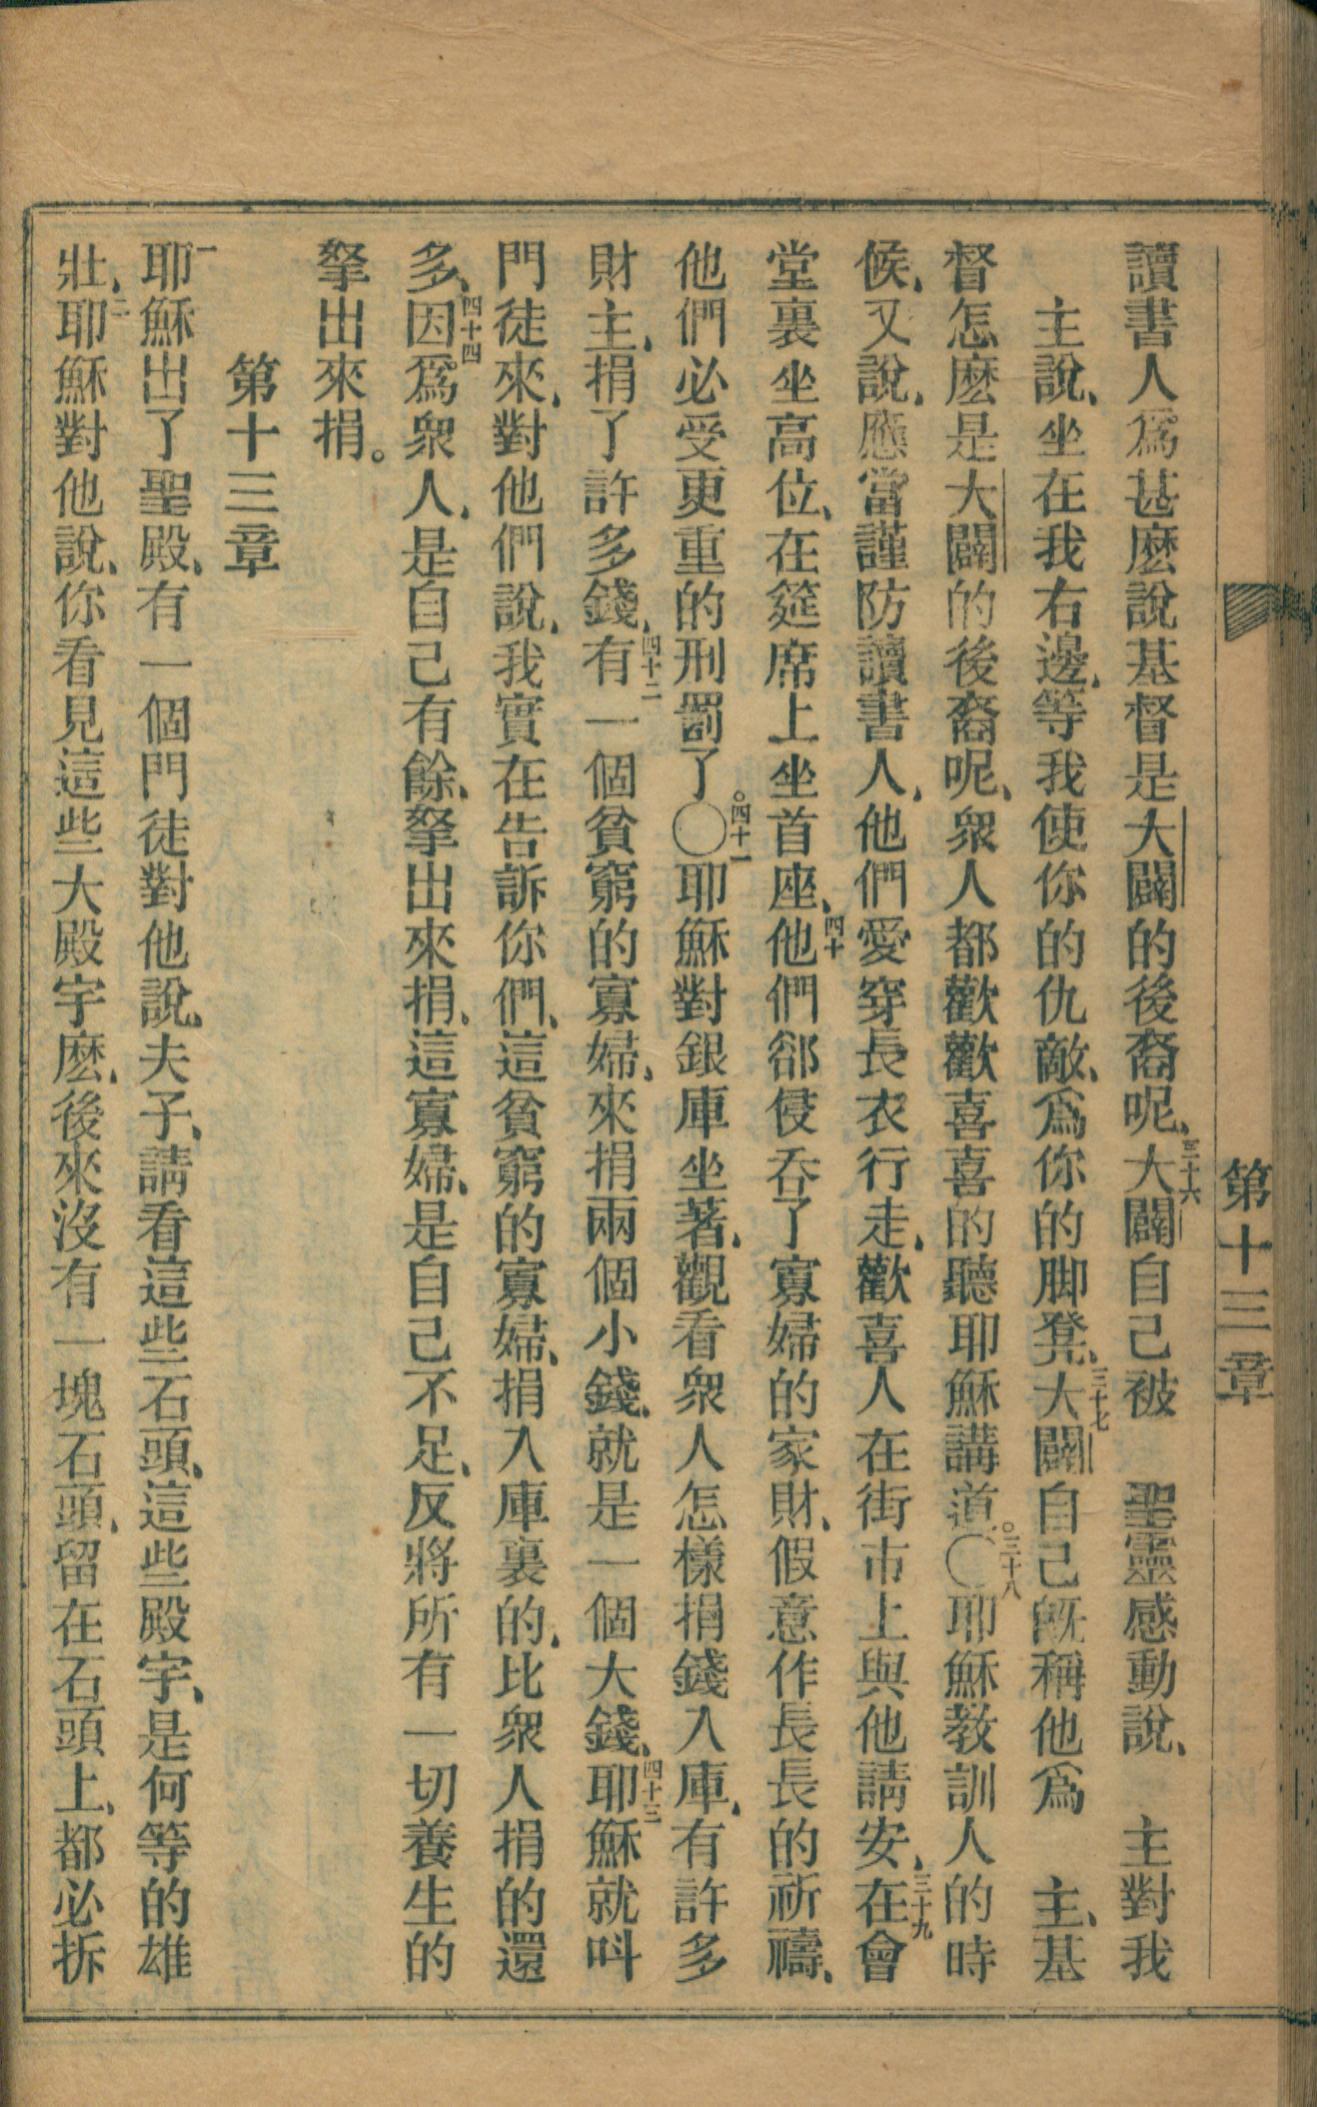 第十三章
讀書人爲甚麽說基督是大闢的後裔呢、三十六大闢自己被　聖靈感動說、　主對我
主說、坐在我右邊、等我使你的仇敵、爲你的脚凳、三十七大闢自己旣稱他爲　主、基
督怎麽是大闢的後裔呢、衆人都歡歡喜喜的聽耶穌講道。〇三十八耶穌教訓人的時
候、又說、應當謹防讀書人、他們愛穿長衣行走、歡喜人在街市上與他請安、三十九在會
堂裏坐高位、在筵席上坐首座、四十他們郤侵吞了寡婦的家財、假意作長長的祈禱、
他們必受更重的刑罰了。〇四十一耶穌對銀庫坐著、觀看衆人怎樣捐錢入庫、有許多
財主、捐了許多錢、四十二有一個貧窮的寡婦、來捐兩個小錢、就是一個大錢、四十三耶穌就呌
門徒來、對他們說、我實在告訴你們、這貧窮的寡婦、捐入庫裏的、比衆人捐的還
多、四十四因爲衆人、是自己有餘、拏出來捐、這寡婦、是自己不足、反將所有一切養生的
拏出來捐。
第十三章
一耶穌出了聖殿、有一個門徒對他說、夫子、請看這些石頭、這些殿宇、是何等的雄
壯、二耶穌對他說、你看見這些大殿宇麽、後來沒有一塊石頭、留在石頭上、都必拆